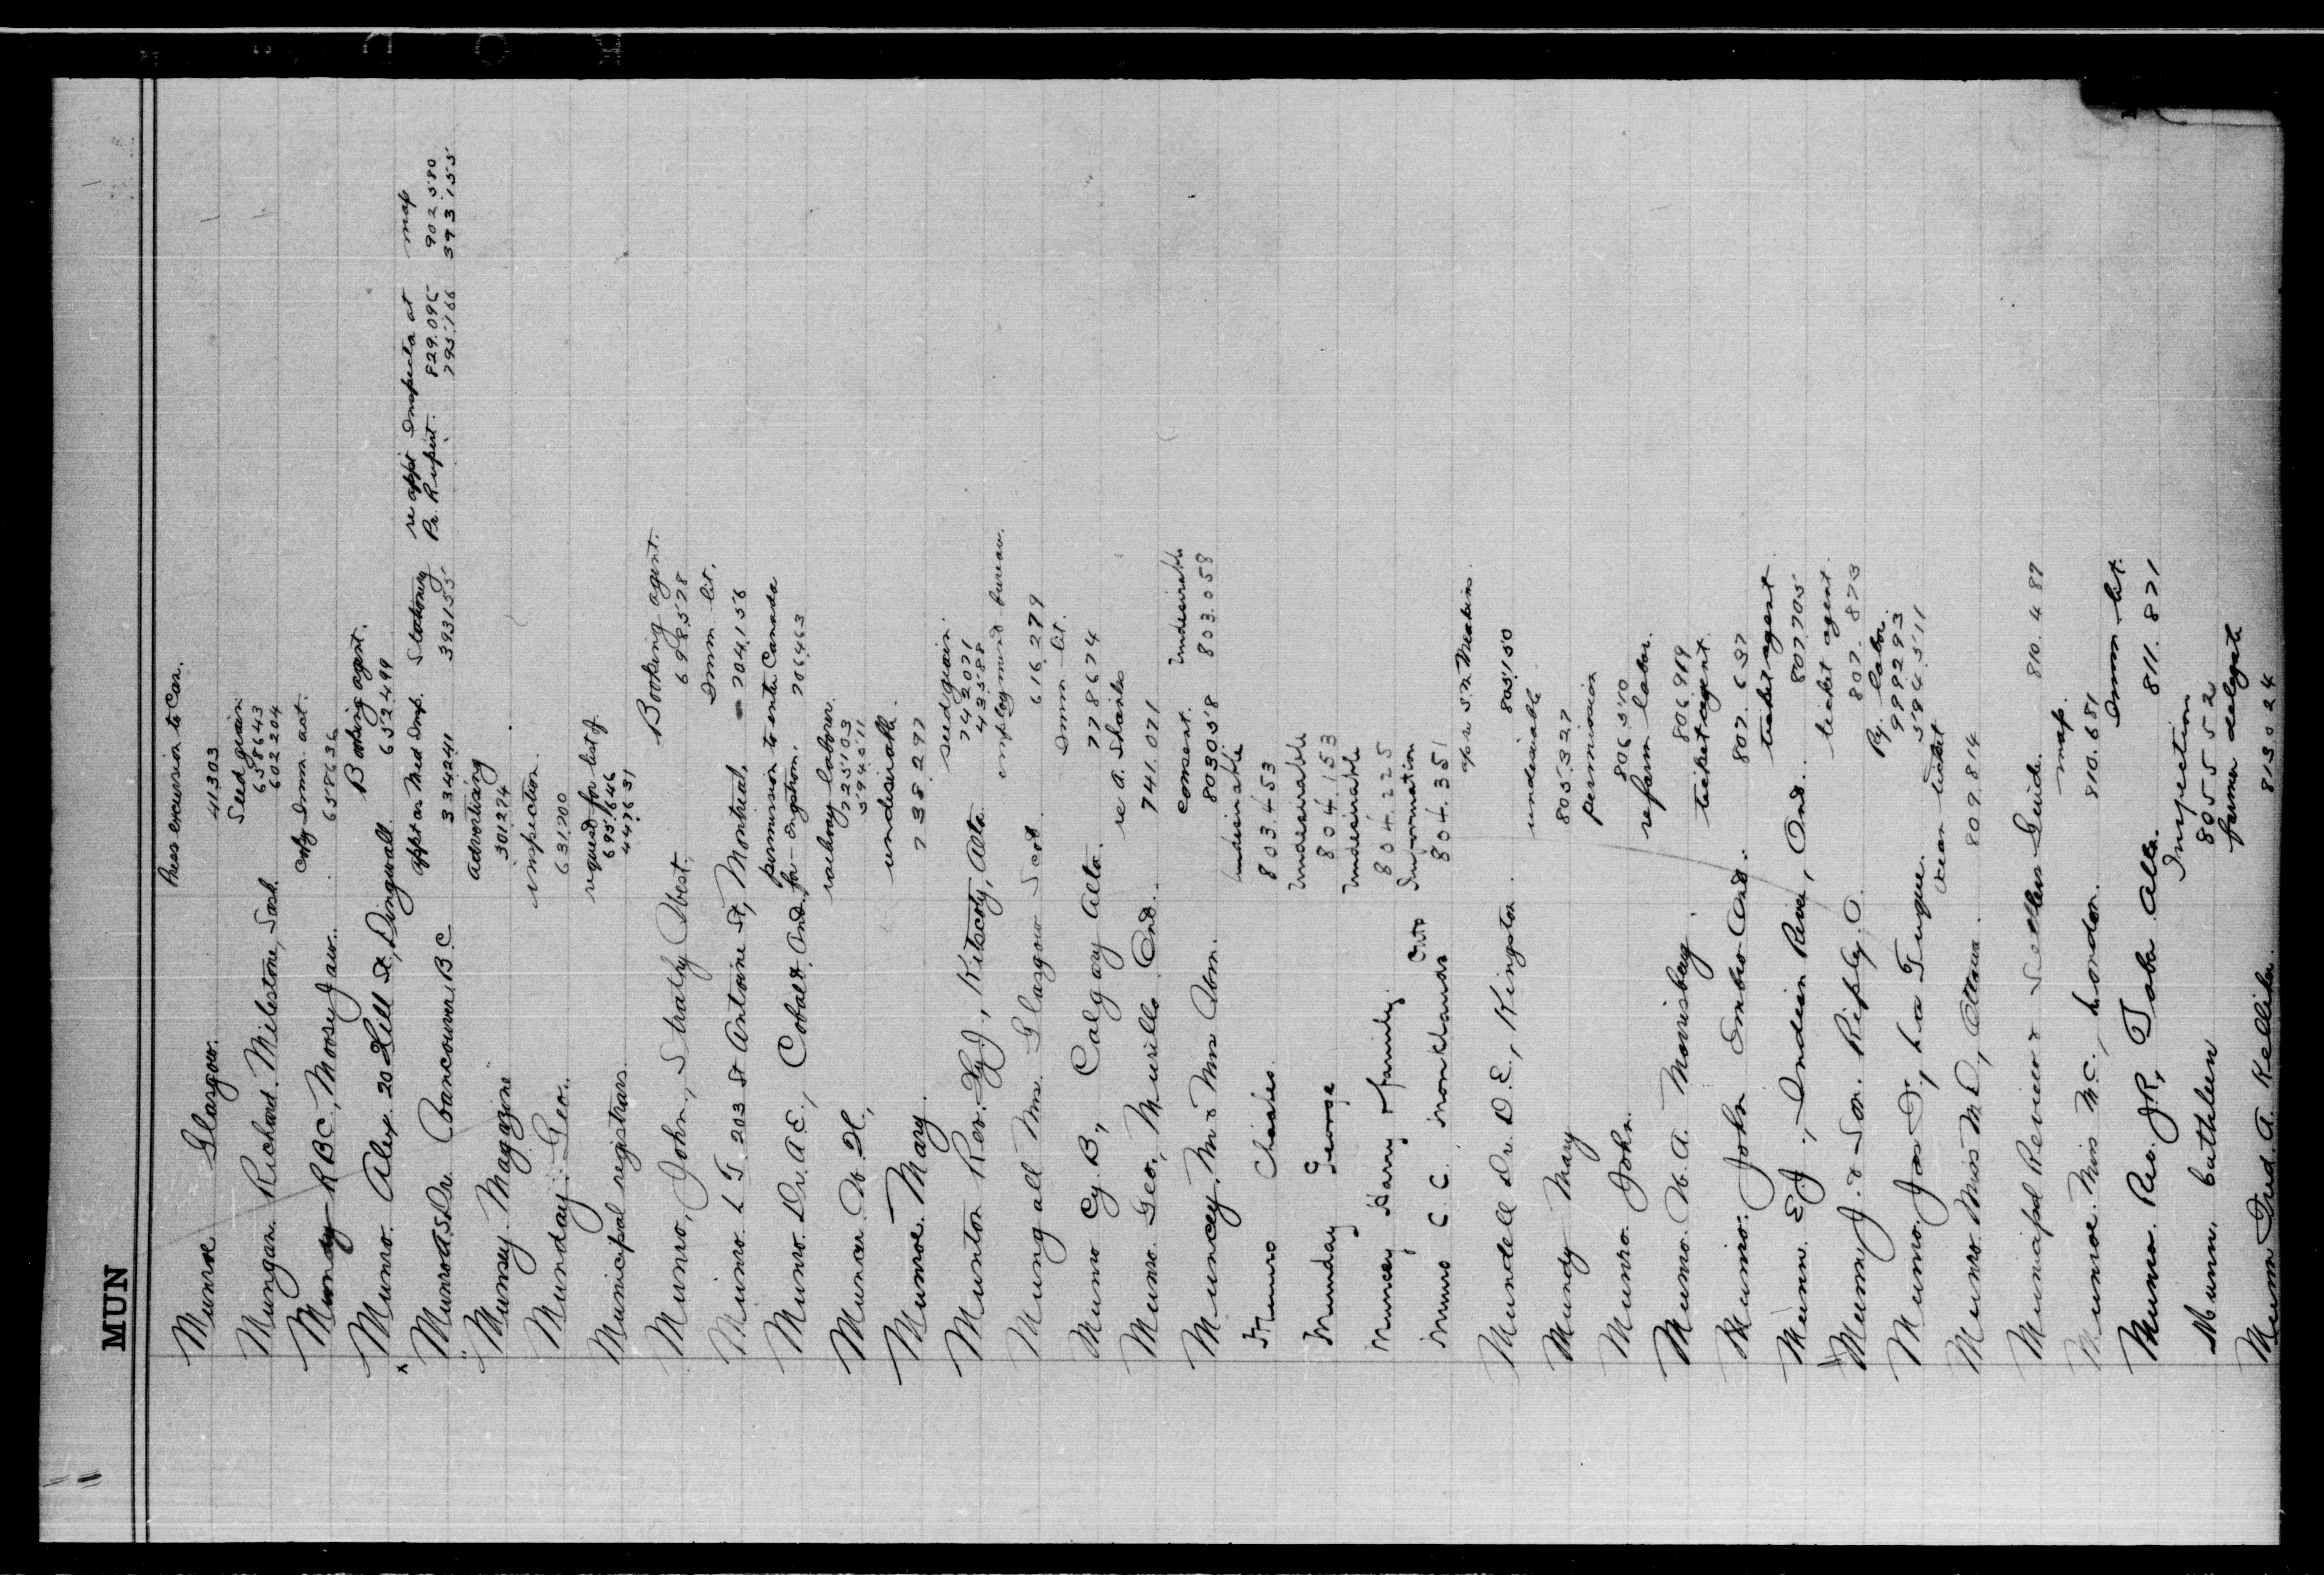 MUN
Press excursion to Can.
Munroe Glasgow. 41303
Seed grain
Mungan Richard. Milestone, Sask. 658643
602204
Imm. act.
Mundy R B C, Moose Jaw. 658636
Booking agent.
Munro. Alex. 20 Hill St, Dingwall. 652499
appt as Med Insp. Stationery re appt Inspector at map
Munro A.S. Dr. Vancouver B.C. 334241 393155 Pr. Rupert. 829.095 902580
795.166 393155
advertising
Munsey Magazine 301274
inspection.
Munday. Geo. 631700
request for list of
Municipal registrars. 695.1646
447631
Booking agent.
Munro, John, Strathy 698578
Imm. lit.
Munro. L T. 203 St Antoine St, Montreal. 704,156
permission to enter Canada
Munro. Dr. A E, Cobalt. Ont. for Engstrom. 706463
railway laborer.
Muncar. W. H, 725103
594511
undesirable.
Munroe. Mary. 738297
seed grain.
Munton Rev. , Kitscoty, Alta. 742071
43588
employment bureau.
Mungall Mrs. Glasgow Scot. 616,279
Imm. lit.
Munro Cy. B, Calgary Alta. 778674
re A. Sharles
Munro. Geo., Murillo Ont. 741.071
consent. Undesirable
Muncey. Mr & Mrs Abm. 803058 803.058
Undesirable
Munro Charles 803.453
Undesirable
Munday George 804.153
Undesirable
Muncey Harry & family. 804.225
Information
Munro C. C. Monklands Ont 804.351
Mundell Dr. D. E., Kingston. 805,150
undesirable.
Mundy Mary 805.327
permission
Munro. John. 806.510
re farm labor.
Munro. W. A. Morrisburg. 806.919
ticket agent.
Munro. John Embro Ont. 807.637
ticket agent
Munn. E J., Indian River, Ont. 807.705
ticket agent.
Munn J. & Son. Ripley. O. 807.873
Ry. labor.
Munro. Jas , La Tuque. 999293
594.511
ocean ticket
Munro. Miss M. D, Ottawa. 809.814
Municipal Review & Settlers Guide. 810.487
map.
Munroe. Miss M.C., London. 810.681
Imm lit.
Munro. Rev. J.R, Taber Alta. 811.871
Inspection
Munn, Cathleen 805552
farmer delegate
Munn Fred. A. Kelliher. 813024